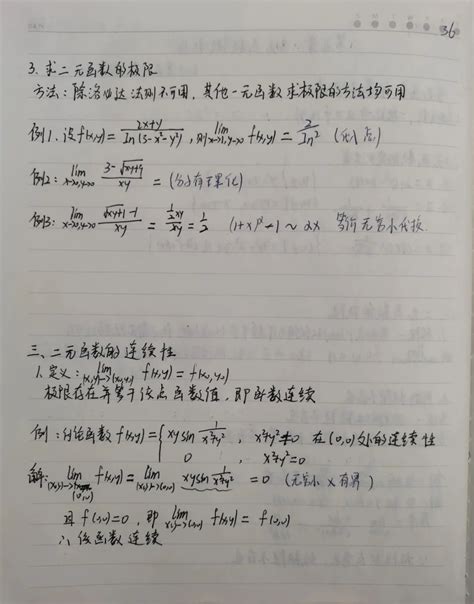 36
3. 求二元函数的极限
方法：除洛必达法则不可用，其他一元函数求极限的方法均可用
例1. 设f(x,y)= (2x+y)/(ln(3-x²-y²)), 则 lim x→1,y→0 f(x,y) = 2/ln2 (代入点)
例2: lim x→0,y→0 (3-√(xy+9))/(xy) = (分子有理化)
例3: lim x→0,y→0 (√(xy+1)-1)/(xy) = (½xy)/(xy) = ½ (1+x)^α-1 ~ αx 等价无穷小代换
三、二元函数的连续性
1. 定义: lim (x,y)→(x₀,y₀) f(x,y) = f(x₀,y₀)
极限存在并等于该点函数值，即函数连续
例: 讨论函数 f(x,y)= { xy sin 1/(x²+y²), x²+y²≠0 在(0,0)处的连续性
0 , x²+y²=0
解: lim (x,y)→(0,0) f(x,y) = lim (x,y)→(0,0) xy sin 1/(x²+y²) = 0 (无穷小×有界)
且 f(0,0)=0, 即 lim (x,y)→(0,0) f(x,y) = f(0,0)
∴ 该函数连续